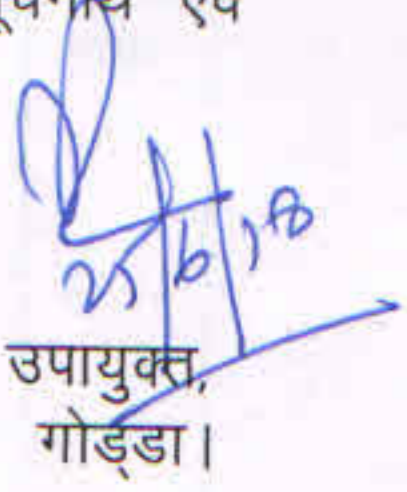 एवं
25/6/18
उपायुक्त,
गोड्डा।